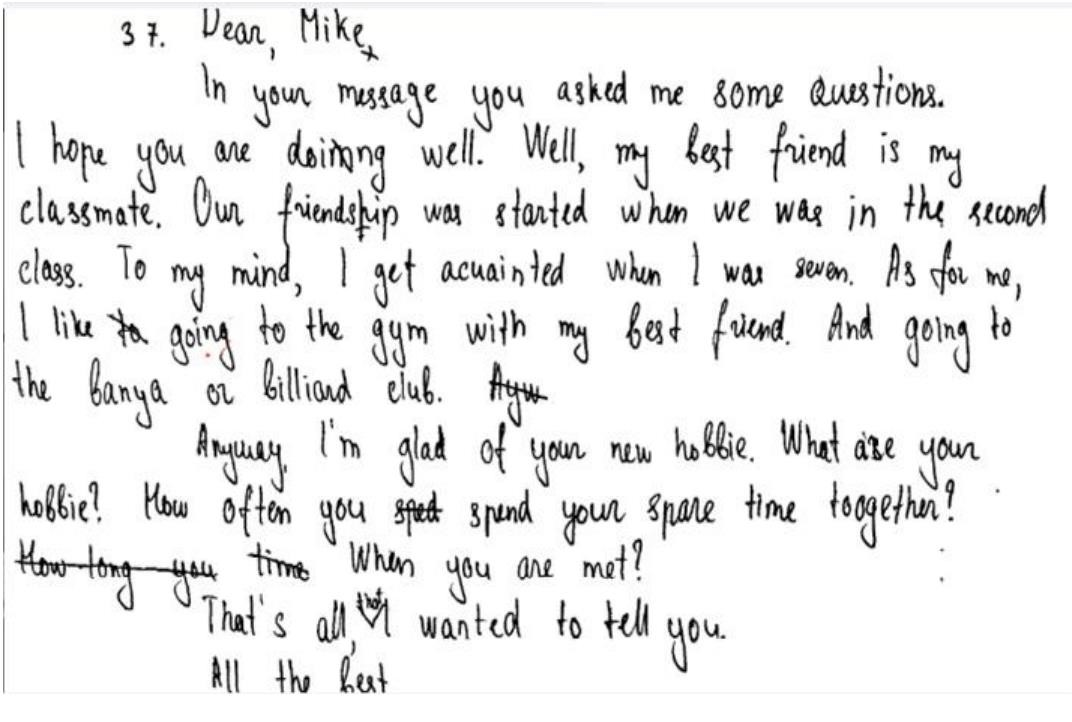 37. Dear, Mike,
In your message you asked me some questions.
I hope you are doing well. Well, my best friend is my
classmate. Our friendship was started when we was in the second
class. To my mind, I get acuainted when I was seven. As for me,
I like to going to the gym with my best friend. And going to
the banya or billiard club. Ayw
Anyway, I'm glad of your new hobbie. What are your
hobbie? How often you sped spend your spare time toogether?
How long you time When you are met?
That's all, that I wanted to tell you.
All the best